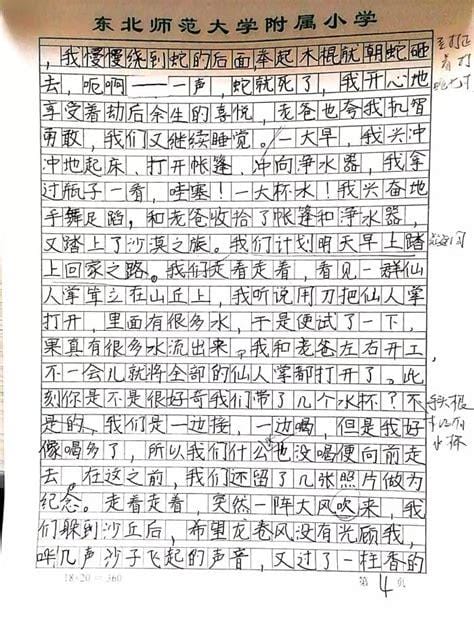 东北师范大学附属小学
，我慢慢绕到蛇的后面举起木棍就朝蛇砸
去，呃啊——一声，蛇就死了，我开心地
享受着劫后余生的喜悦，老爸也夸我机智
勇敢，我们又继续睡觉。一大早，我兴冲
冲地起床、打开帐篷、冲向净水器，我拿
过瓶子一看，哇塞！一大杯水！我兴奋地
手舞足蹈，和老爸收拾了帐篷和净水器，
又踏上了沙漠之旅。我们计划明天早上踏
上回家之路。我们走着走着，看见一群仙
人掌耸立在山丘上，我听说用刀把仙人掌
打开，里面有很多水，于是便试了一下，
果真有很多水流出来，我和老爸左右开工，
不一会儿就将全部的仙人掌都打开了。此
刻你是不是很好奇我们带了几个水杯？不
是的，我们是一边接，一边喝，但是我好
像喝多了，所以我们什么也没喝便向前走
去，在这之前，我们还留了几张照片做为
纪念。走着走着，突然一阵大风吹来，我
们躲到沙丘后，希望龙卷风没有光顾我，
哗几声沙子飞起的声音，又过了一柱香的
18×20＝360
第4页